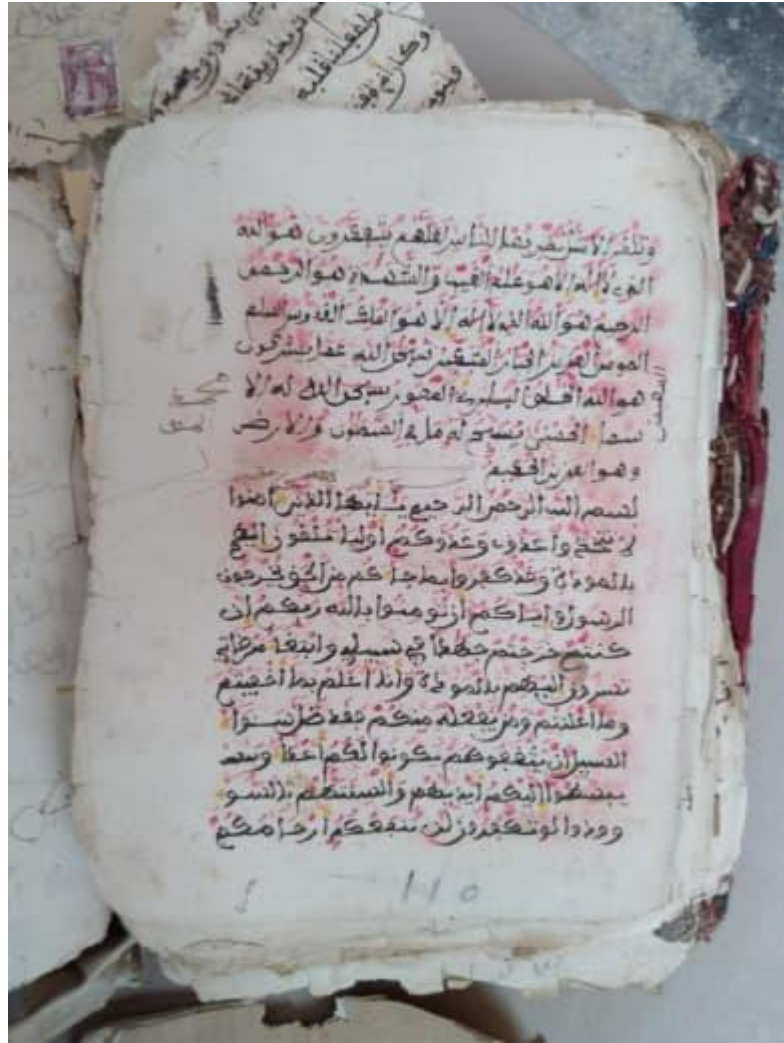 وتلك الامثل نضربها للناس لعلهم يتفكرون هو الله
الذي لا اله الا هو علم الغيب والشهدة هو الرحمن
الرحيم هو الله الذي لا اله الا هو الملك القدوس السلم
المومن العزيز الجبار المتكبر سبحن الله عما يشركون
المهيمن
هو الله الخلق البارئ المصور له الا
سما الحسنى يسبح له ما في السموت والارض
وهو العزيز الحكيم
بسم الله الرحمن الرحيم يايها الذين امنوا
لا تتخذوا عدوي وعدوكم اوليا تلقون اليهم
بالمودة وقد كفروا بما جاكم من الحق يخرجون
الرسول واياكم ان تومنوا بالله ربكم ان
كنتم خرجتم جهدا في سبيلي وابتغا مرضاتي
تسرون اليهم بالمودة وانا اعلم بما اخفيتم
وما اعلنتم ومن يفعله منكم فقد ضل سوا
السبيل ان يثقفوكم يكونوا لكم اعدا
ويبسطوا اليكم ايديهم والسنتهم بالسو
وودوا لو تكفرون لن تنفعكم ارحامكم